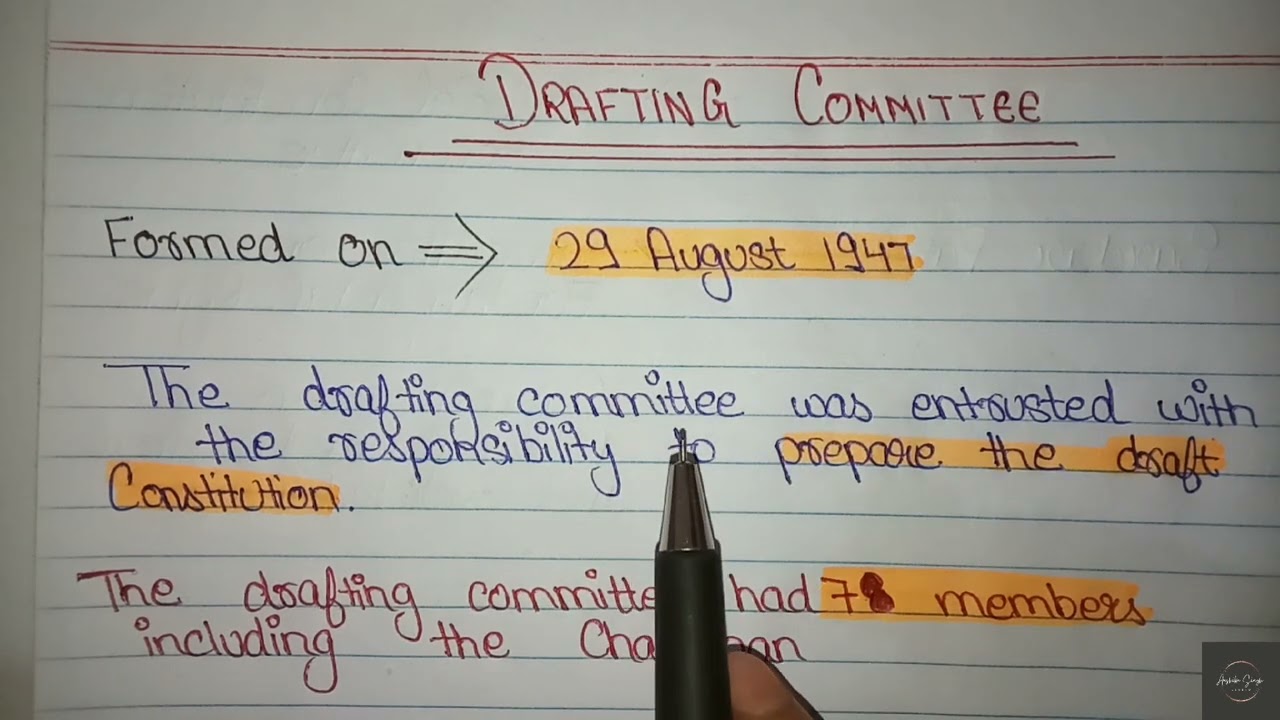 DRAFTING COMMITTEE
Formed on ⇒ 29 August 1947.
The drafting committee was entrusted with
the responsibility to prepare the draft
Constitution.
The drafting committee had 7 members
including the Chairman